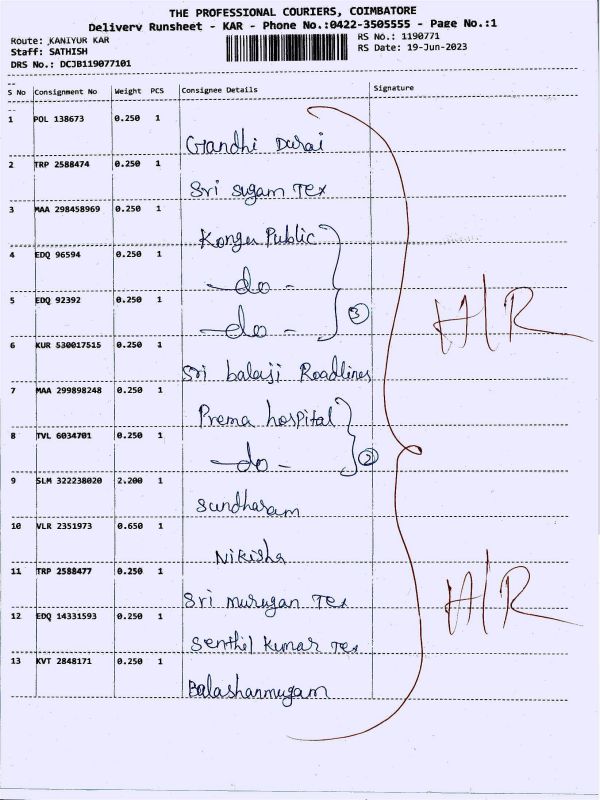 THE PROFESSIONAL COURIERS, COIMBATORE
Delivery Runsheet - KAR - Phone No.:0422-3505555 - Page No.:1
Route: KANIYUR KAR
RS No.: 1190771
Staff: SATHISH
RS Date: 19-Jun-2023
DRS No.: DCJB119077101
S No Consignment No Weight PCS Consignee Details Signature
1 POL 138673 0.250 1
Gandhi Durai
2 TRP 2588474 0.250 1
Sri Sugam Tex
3 MAA 298458969 0.250 1
Kongu Public
4 EDQ 96594 0.250 1
-do-
5 EDQ 92392 0.250 1
-do- 3
H/R
6 KUR 530017515 0.250 1
Sri balaji Roadlines
7 MAA 299898248 0.250 1
Prema hospital
8 TVL 6034701 0.250 1
-do- 2
9 SLM 322238020 2.200 1
Sundharam
10 VLR 2351973 0.650 1
Nikisha
11 TRP 2588477 0.250 1
Sri murugan Tex
H/R
12 EDQ 14331593 0.250 1
Senthil Kumar Tex
13 KVT 2848171 0.250 1
Balashanmugam